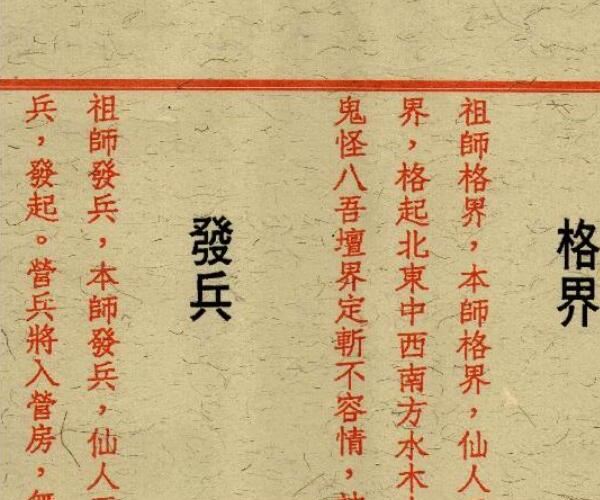 格界
祖師格界，本師格界，仙人
界，格起北東中西南方水木
鬼怪八吾壇界定斬不容情，
發兵
祖師發兵，本師發兵，仙人
兵，發起。營兵將入營房，